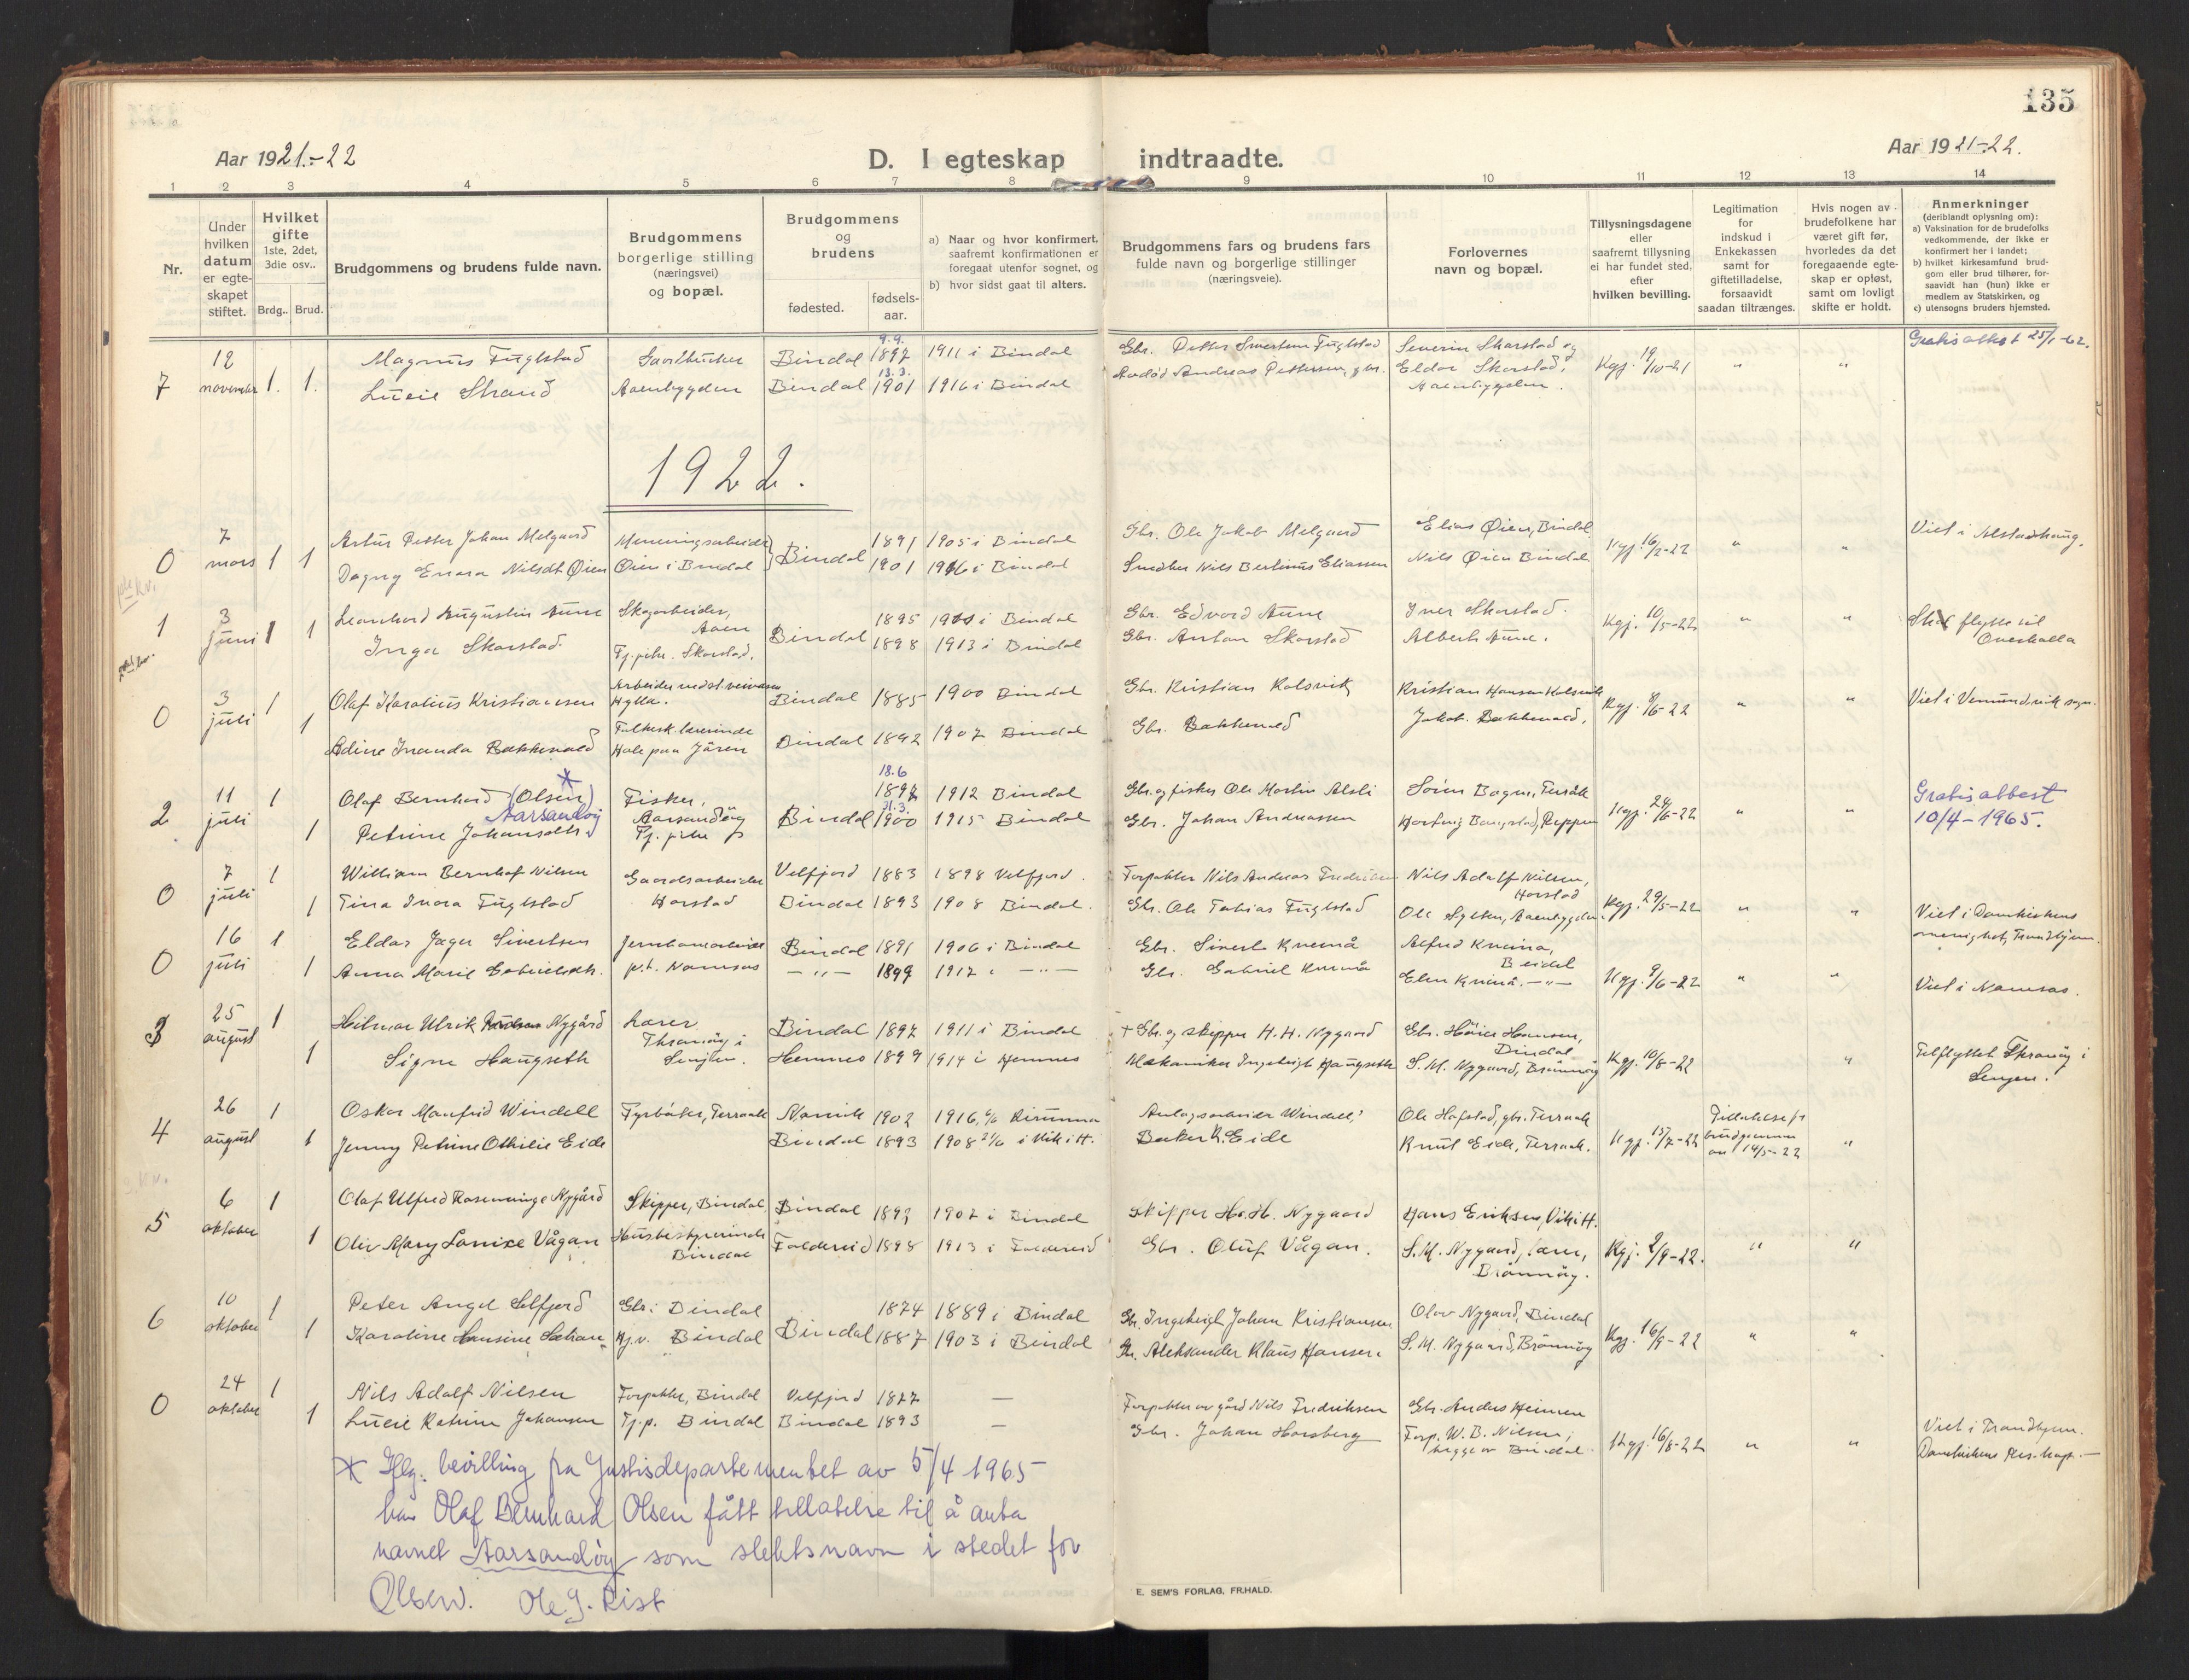 135
Aar 1921.-22
D. I egteskap indtraadte.
Aar 1921-22.
1 2 3 4 5 6 7 8 9 10 11 12 13 14
Nr.
Under hvilken datum er egteskapet stiftet.
Hvilket gifte
1ste, 2det, 3die osv..
Brdg.. Brud.
Brudgommens og brudens fulde navn.
Brudgommens borgerlige stilling (næringsvei) og bopæl.
Brudgommens og brudens
fødested. fødsels-aar.
a) Naar og hvor konfirmert, saafremt konfirmationen er foregaat utenfor sognet, og
b) hvor sidst gaat til alters.
Brudgommens fars og brudens fars fulde navn og borgerlige stillinger (næringsveie).
Forlovernes navn og bopæl.
Tillysningsdagene eller saafremt tillysning ei har fundet sted, efter hvilken bevilling.
Legitimation for indskud i Enkekassen samt for giftetilladelse, forsaavidt saadan tiltrænges.
Hvis nogen av brudefolkene har været gift før, hvorledes da det foregaaende egteskap er opløst, samt om lovligt skifte er holdt.
Anmerkninger
(deriblandt oplysning om):
a) Vaksination for de brudefolks vedkommende, der ikke er konfirmert her i landet;
b) hvilket kirkesamfund brudgom eller brud tilhører, forsaavidt han (hun) ikke er medlem av Statskirken, og
c) utensogns bruders hjemsted.
7 12 november 1. 1.
Magnus Fuglstad Gaardbruker Bindal 9.9. 1897 1911 i Bindal Gbr. Petter Sivertsen Fuglstad Severin Skarstad og Kgj. 19/10-21 " " Gratisattest 25/1-62.
Lucie Strand Aaenbygden Bindal 13.3. 1901 1916 i Bindal Andreas Pettersen, gbr. Eldor Skarstad, Aaenbygden.
1922.
0 7 mars 1 1
Artur Petter Johan Melgaard Bindal 1891 1905 i Bindal Gbr. Ole Jakob Melgaard Elias Øien, Bindal Kgj. 16/2-22 " " Viet i Alstadhaug.
Dagny Enora Nilsdt Øien Øien i Bindal 1901 1916 i Bindal Smeder Nils Bertinus Eliassen Nils Øien Bindal
1 3 juni 1 1
Leonhard Augustin Aune Skogarbeider, Aaen Bindal 1895 i Bindal Gbr. Edvard Aune Iver Skarstad. Kgj. 10/5-22 " " Skal flytte til Overhalla
Inga Skarstad. Tj.pike. Skarstad. 1898 1913 i Bindal Gbr. Anton Skarstad Albert Aune.
0 3 juli 1 1
Olaf Karolius Kristiansen Bindal 1885 1900 Bindal Gbr. Kristian Kolsvik Kristian Hansen Kolsvik Kgj. 8/6-22 " " Viet i Vemundvik sogn.
Adine Inanda Bakkevald Folkesk. lærerinde Hole paa Jæren Bindal 1892 1907 Bindal Gbr. Bakkevald Jakob Bakkevald,
2 11 juli 1 1
Olaf Bernhard (Olsen) * Aarsandøy Fisker, Aarsandöy Bindal 18.6 1897 1912 Bindal Gbr. og fisker Ole Martin Alsli Sören Bogen, Terråk Kgj. 24/6-22 " " Gratisattest 10/4-1965.
Petrine Johansdtr. Tj. pike 21.3. 1900 1915 Bindal Gbr. Johan Andreassen
0 7 juli 1 1
William Bernhof Nilsen Gaardsarbeider Velfjord 1883 1898 Velfjord. Forpakter Nils Andreas Fredriksen Nils Adolf Nilsen, Horstad Kgj. 29/5-22 " " Viet i Domkirkens menighet, Trondhjem.
Tina Inora Fuglstad Horstad Bindal 1893 1908 Bindal. Gbr. Ole Tobias Fuglstad Ole Sylten, Aaenbygden.
0 16 juli 1 1
Eldar Jæger Sivertsen Jernbanearbeider Bindal 1891 1906 i Bindal Gbr. Sivert Kveinå Alfred Kveina, Bindal Kgj. 9/6-22 " " Viet i Namsos.
Anna Marie Gabrielsdtr. p.t. Namsos — " — 1899 1912 i — " — Gbr. Gabriel Kveinå Elen Kveinå. — " —
3 25 august 1 1
Hilmar Ulrik Nygård Lærer Thranöy i Senjen. Bindal 1897 1911 i Bindal + Gbr. og skipper H. H. Nygaard Gbr. Höier Hansen, Bindal Kgj. 10/8-22 " Tilflyttet Thranöy i Senjen.
Signe Haugseth Hemnes 1899 1914 i Hemnes Mekaniker Ingebrigt Haugseth S. M. Nygaard, Brönnöy
4 26 august 1 1
Oskar Manfrid Windell Fyrböter, Terraak 1902 1916 Anlegsarbeider Windell, Ole Hofstad, gbr. Terraak Kgj. 15/7-22 Tillatelse fr brudgommen av 14/5-22 "
Jenny Petrine Othilie Eide Bindal 1893 1908 i Vik i H. Baker K. Eide Knut Eide, Terraak.
5 6 oktober 1 1
Olaf Ulfred Rosenvinge Nygård Skipper, Bindal Bindal 1893 1907 i Bindal Skipper H. H. Nygaard Hans Eriksen, Vik i H. Kgj. 2/9-22. " "
Oliv Mary Lovise Vågan Husbestyrerinde Bindal Foldereid 1898 1913 i Foldereid Gbr. Oluf Vågan. S. M. Nygaard, lærer, Brönnöy.
6 10 oktober 1 1
Peter Angel Selfjord Gbr. Bindal Bindal 1874 1889 i Bindal Gbr. Ingebrigt Johan Kristiansen Olav Nygaard, Bindal Kgj. 16/9-22 " "
Karoline Hansine Bindal 1887 1903 i Bindal Gbr. Aleksander Klaus Hansen S. M. Nygaard, Brönnöy
0 24 oktober 1 1
Nils Adolf Nilsen Forpakter, Bindal Velfjord 1877 — Forpakter av gård Nils Fredriksen Gbr. Anders Heimen Kgj. 16/8-22 " " Viet i Trondhjem.
Lucie Katrine Johansen Tj.p. Bindal Bindal 1893 — Gbr. Johan Horsberg Forp. W. B. Nilsen, begge av Bindal. Domkirkens
* Iflg. bevilling fra Justisdepartementet av 5/4 1965
har Olaf Bernhard Olsen fått tillatelse til å anta
navnet Aarsandøy som slektsnavn i stedet for
Olsen. Ole J. Rist
E. SEM'S FORLAG, FR.HALD.